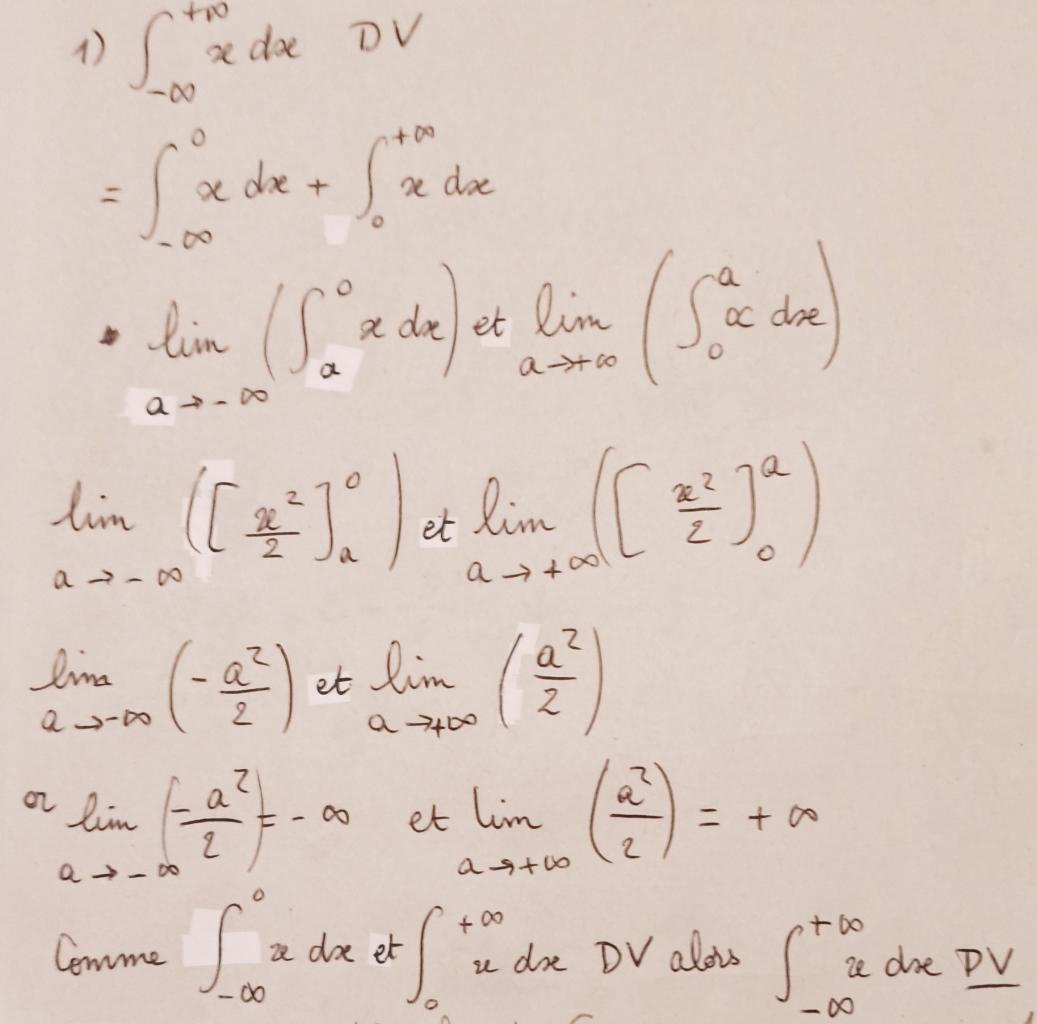 1) ∫_{-∞}^{+∞} x dx DV
= ∫_{-∞}^{0} x dx + ∫_{0}^{+∞} x dx
• lim_{a→-∞} (∫_{a}^{0} x dx) et lim_{a→+∞} (∫_{0}^{a} x dx)
lim_{a→-∞} ([x²/2]_{a}^{0}) et lim_{a→+∞} ([x²/2]_{0}^{a})
lim_{a→-∞} (-a²/2) et lim_{a→+∞} (a²/2)
or lim_{a→-∞} (-a²/2) = -∞ et lim_{a→+∞} (a²/2) = +∞
Comme ∫_{-∞}^{0} x dx et ∫_{0}^{+∞} x dx DV alors ∫_{-∞}^{+∞} x dx DV